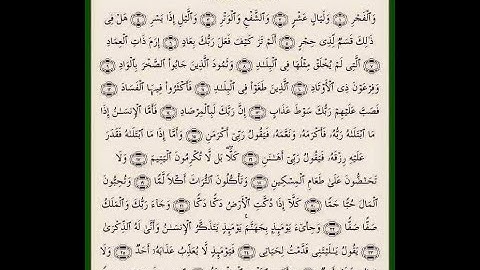 وَالْفَجْرِ ١ وَلَيَالٍ عَشْرٍ ٢ وَالشَّفْعِ وَالْوَتْرِ ٣ وَالَّيْلِ إِذَا يَسْرِ ٤ هَلْ فِي
ذَٰلِكَ قَسَمٌ لِذِي حِجْرٍ ٥ أَلَمْ تَرَ كَيْفَ فَعَلَ رَبُّكَ بِعَادٍ ٦ إِرَمَ ذَاتِ الْعِمَادِ
٧ الَّتِي لَمْ يُخْلَقْ مِثْلُهَا فِي الْبِلَٰدِ ٨ وَثَمُودَ الَّذِينَ جَابُوا الصَّخْرَ بِالْوَادِ ٩
وَفِرْعَوْنَ ذِي الْأَوْتَادِ ١٠ الَّذِينَ طَغَوْا فِي الْبِلَٰدِ ١١ فَأَكْثَرُوا فِيهَا الْفَسَادَ ١٢
فَصَبَّ عَلَيْهِمْ رَبُّكَ سَوْطَ عَذَابٍ ١٣ إِنَّ رَبَّكَ لَبِالْمِرْصَادِ ١٤ فَأَمَّا الْإِنسَٰنُ إِذَا
مَا ابْتَلَىٰهُ رَبُّهُ، فَأَكْرَمَهُ، وَنَعَّمَهُ، فَيَقُولُ رَبِّي أَكْرَمَنِ ١٥ وَأَمَّا إِذَا مَا ابْتَلَىٰهُ فَقَدَرَ
عَلَيْهِ رِزْقَهُ، فَيَقُولُ رَبِّي أَهَٰنَنِ ١٦ كَلَّا بَل لَّا تُكْرِمُونَ الْيَتِيمَ ١٧ وَلَا
تَحَٰضُّونَ عَلَىٰ طَعَامِ الْمِسْكِينِ ١٨ وَتَأْكُلُونَ التُّرَاثَ أَكْلًا لَّمًّا ١٩ وَتُحِبُّونَ
الْمَالَ حُبًّا جَمًّا ٢٠ كَلَّا إِذَا دُكَّتِ الْأَرْضُ دَكًّا دَكًّا ٢١ وَجَاءَ رَبُّكَ وَالْمَلَكُ
صَفًّا صَفًّا ٢٢ وَجِاْيءَ يَوْمَئِذٍ بِجَهَنَّمَ يَوْمَئِذٍ يَتَذَكَّرُ الْإِنسَٰنُ وَأَنَّىٰ لَهُ الذِّكْرَىٰ
٢٣ يَقُولُ يَٰلَيْتَنِي قَدَّمْتُ لِحَيَاتِي ٢٤ فَيَوْمَئِذٍ لَّا يُعَذِّبُ عَذَابَهُۥ أَحَدٌ ٢٥